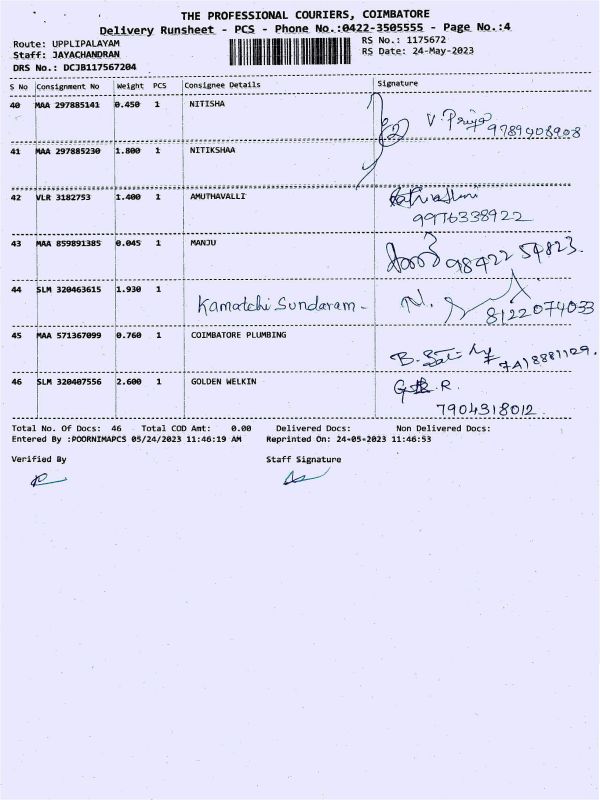 THE PROFESSIONAL COURIERS, COIMBATORE
Delivery Runsheet - PCS - Phone No.:0422-3505555 - Page No.:4
Route: UPPLIPALAYAM RS No.: 1175672
Staff: JAYACHANDRAN RS Date: 24-May-2023
DRS No.: DCJB117567204
S No Consignment No Weight PCS Consignee Details Signature
40 MAA 297885141 0.450 1 NITISHA V. Priya 9789408908
41 MAA 297885230 1.800 1 NITIKSHAA
42 VLR 3182753 1.400 1 AMUTHAVALLI
9976338922
43 MAA 859891385 0.045 1 MANJU 98422 54823.
44 SLM 320463615 1.930 1
Kamatchi Sundaram - N.
8122074033
45 MAA 571367099 0.760 1 COIMBATORE PLUMBING
B. 7418881129.
46 SLM 320407556 2.600 1 GOLDEN WELKIN R.
7904318012
Total No. Of Docs: 46 Total COD Amt: 0.00 Delivered Docs: Non Delivered Docs:
Entered By :POORNIMAPCS 05/24/2023 11:46:19 AM Reprinted On: 24-05-2023 11:46:53
Verified By Staff Signature